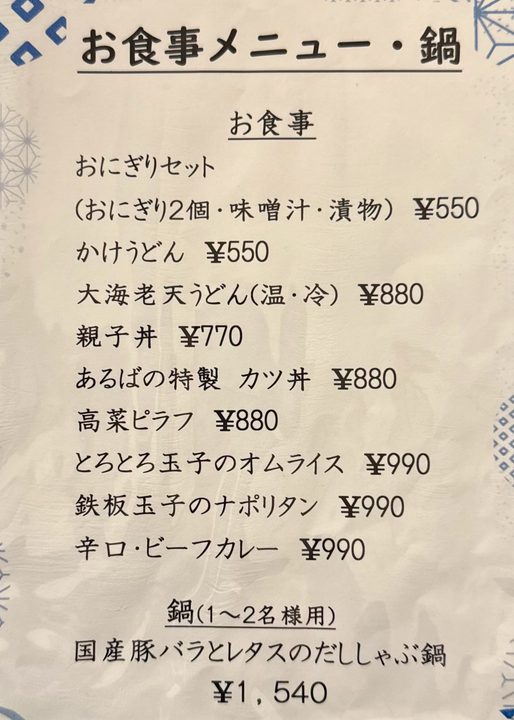 お食事メニュー・鍋
お食事
おにぎりセット
(おにぎり2個・味噌汁・漬物) ¥550
かけうどん ¥550
大海老天うどん(温・冷) ¥880
親子丼 ¥770
あるばの特製 カツ丼 ¥880
高菜ピラフ ¥880
とろとろ玉子のオムライス ¥990
鉄板玉子のナポリタン ¥990
辛口・ビーフカレー ¥990
鍋(1〜2名様用)
国産豚バラとレタスのだししゃぶ鍋
¥1,540